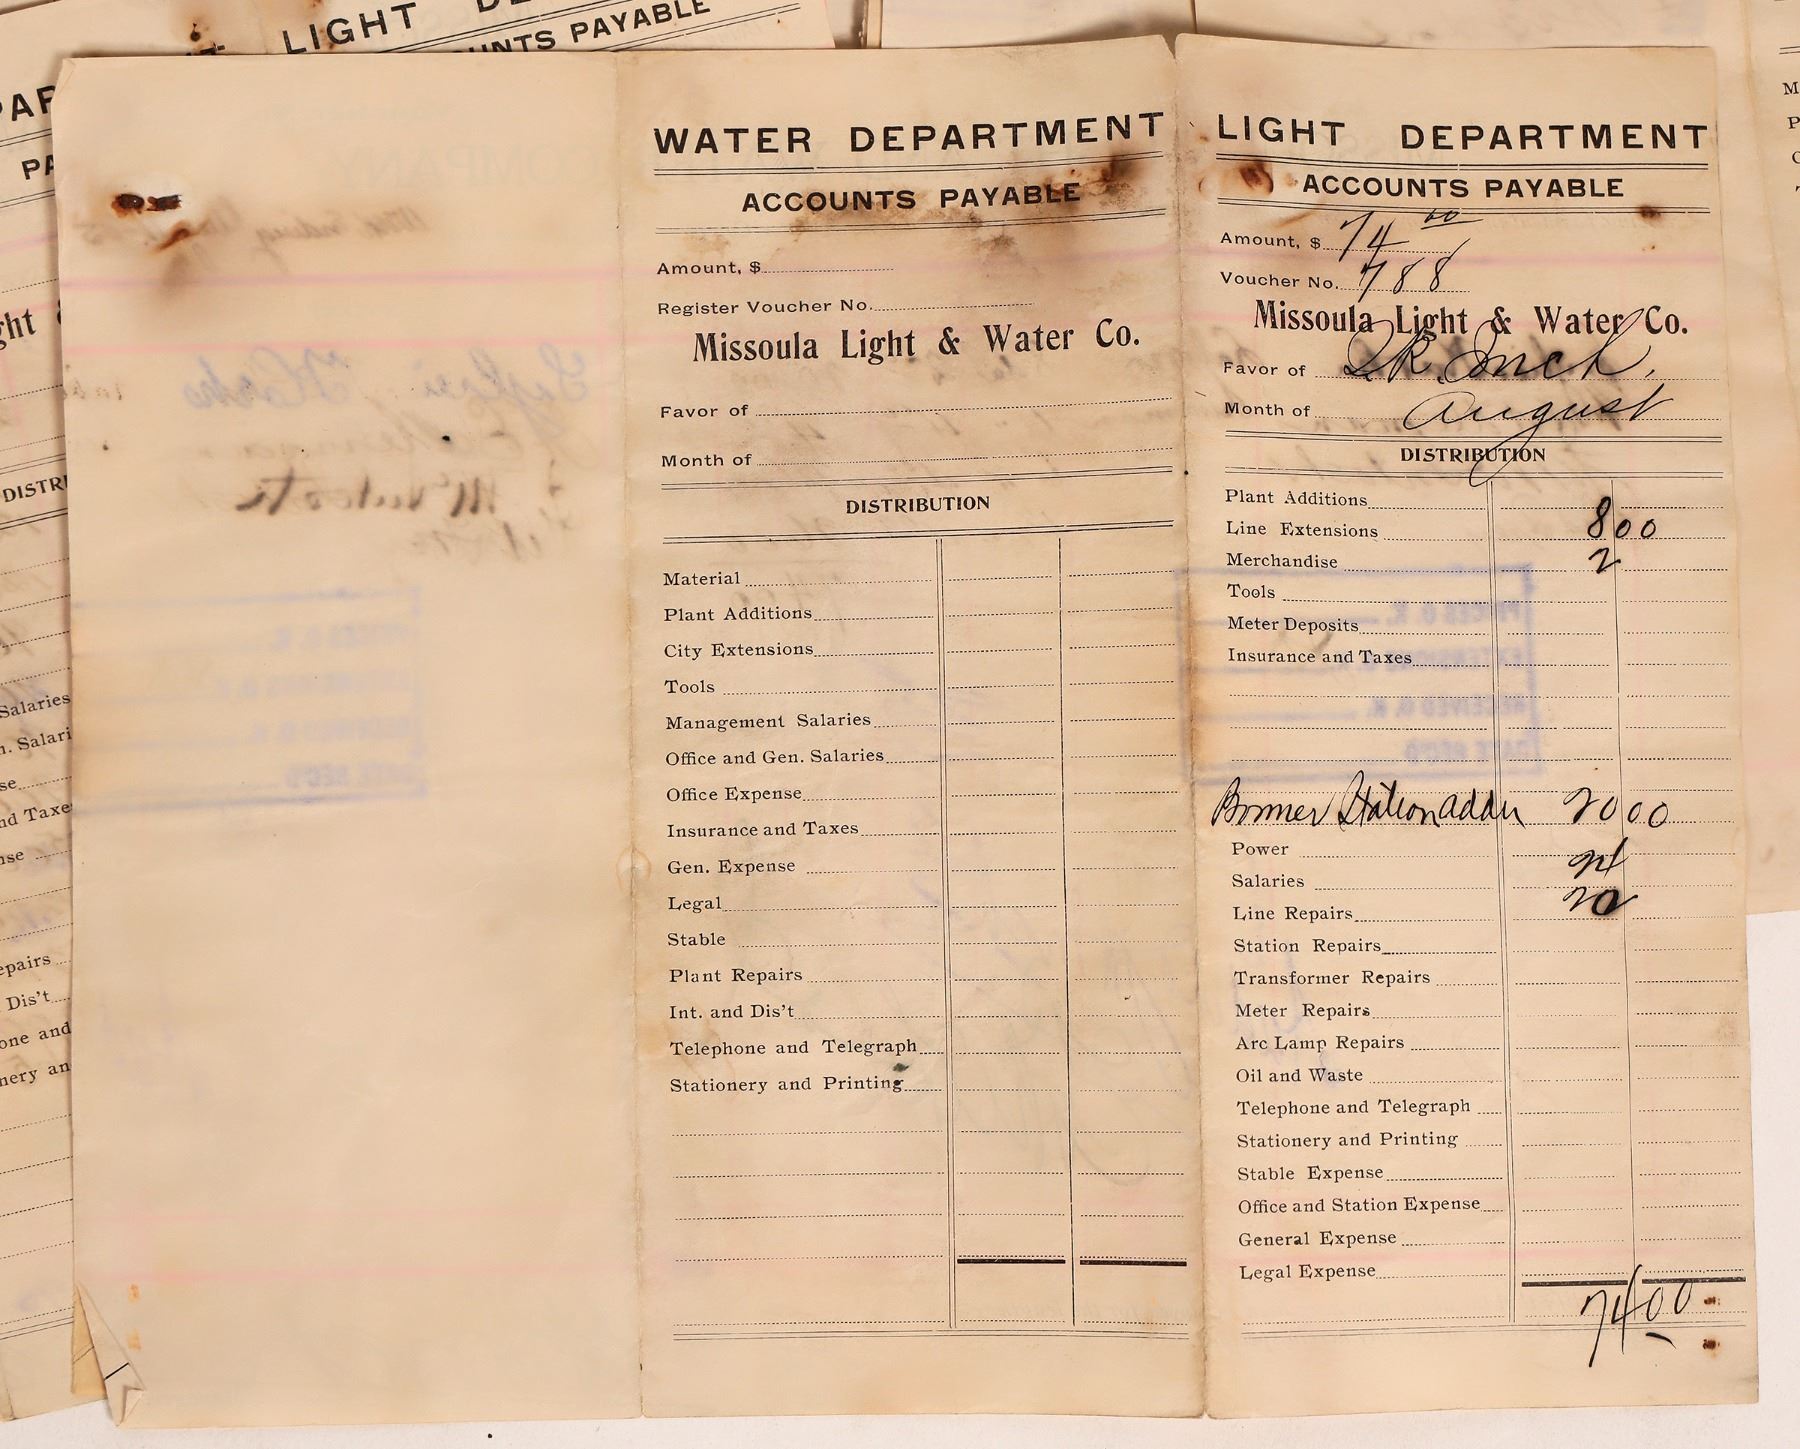 LIGHT
ACCOUNTS PAYABLE
WATER DEPARTMENT
ACCOUNTS PAYABLE
Amount, $
Register Voucher No.
Missoula Light & Water Co.
Favor of
Month of
DISTRIBUTION
Material
Plant Additions
City Extensions
Tools
Management Salaries
Office and Gen. Salaries
Office Expense
Insurance and Taxes
Gen. Expense
Legal
Stable
Plant Repairs
Int. and Dis't
Telephone and Telegraph
Stationery and Printing
LIGHT DEPARTMENT
ACCOUNTS PAYABLE
Amount, $ 74 00
Voucher No. 788
Missoula Light & Water Co.
Favor of
Month of August
DISTRIBUTION
Plant Additions
Line Extensions 8 00
Merchandise 2
Tools
Meter Deposits
Insurance and Taxes
Bonner Station 20 00
Power
Salaries 24
Line Repairs 20
Station Repairs
Transformer Repairs
Meter Repairs
Arc Lamp Repairs
Oil and Waste
Telephone and Telegraph
Stationery and Printing
Stable Expense
Office and Station Expense
General Expense
Legal Expense
74 00